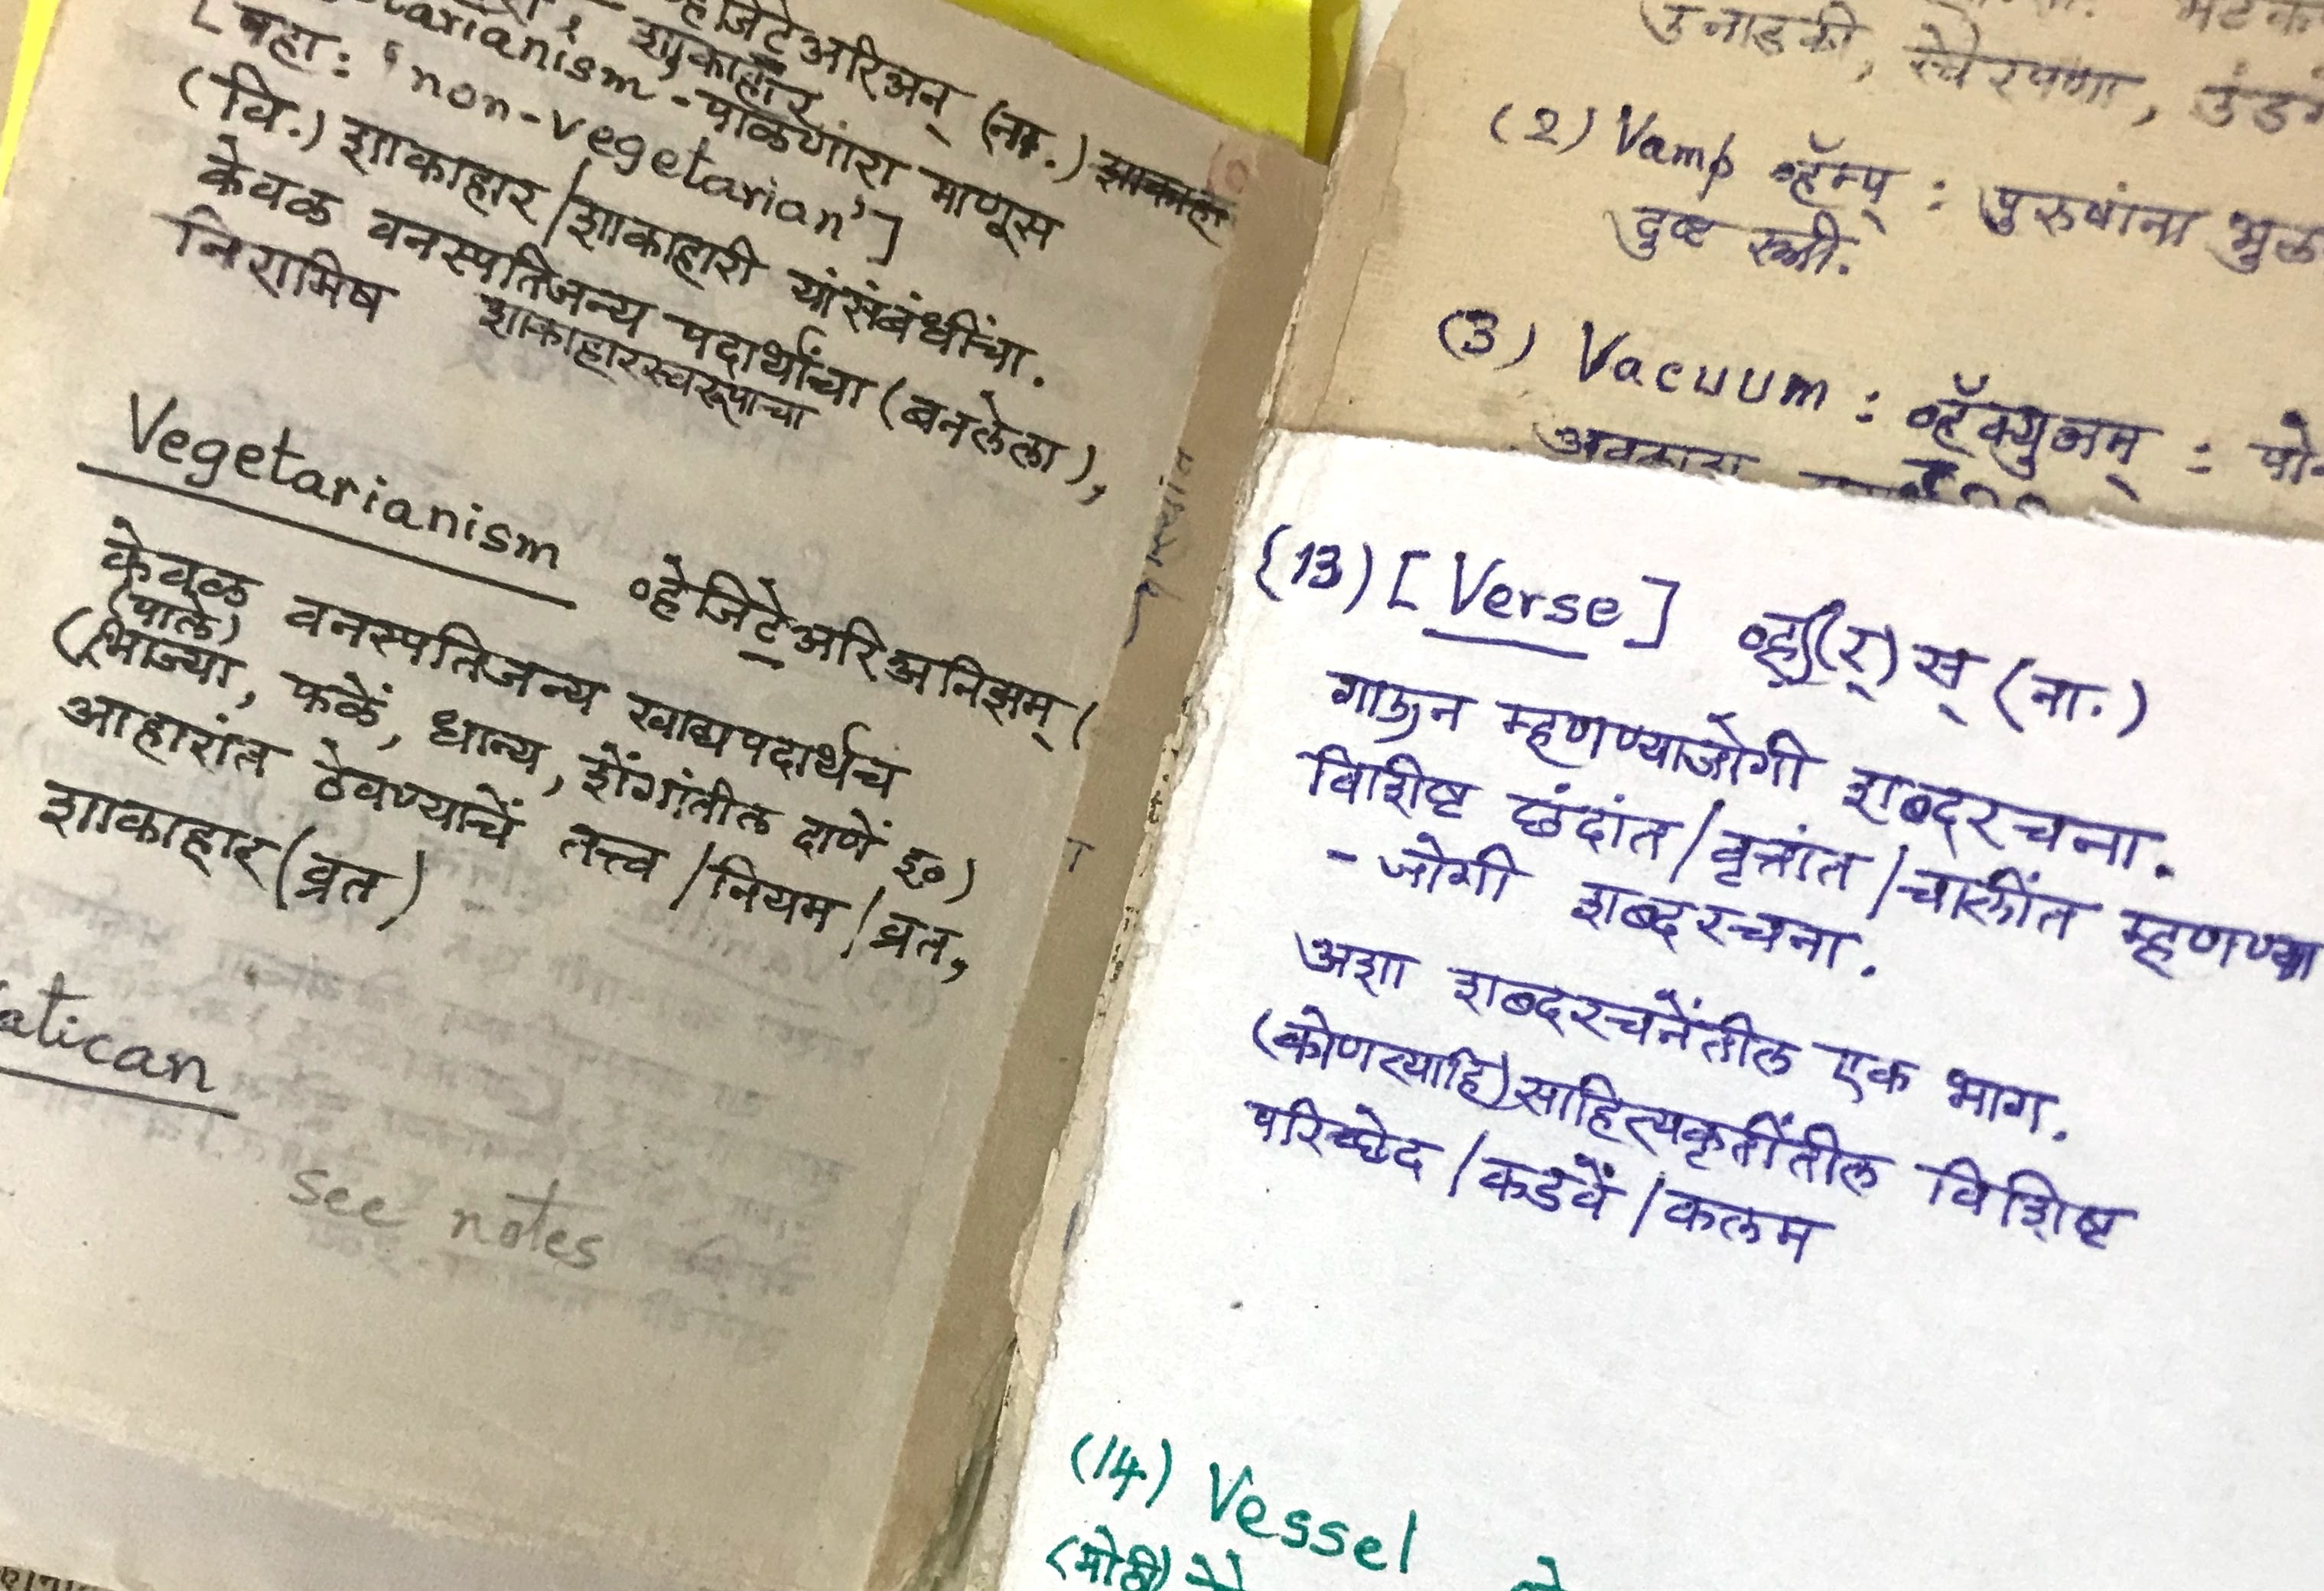 व्हेजिटेअरिअन् (ना.)
शाकाहार
tarianism - पाळणारा माणूस
[पहा: 'non-vegetarian']
(वि.) शाकाहार/शाकाहारी यांसंबंधींचा.
केवळ वनस्पतिजन्य पदार्थांचा (बनलेला),
निरामिष शाकाहारस्वरूपाचा
Vegetarianism व्हेजिटेअरिअनिझम् (
केवळ वनस्पतिजन्य खाद्यपदार्थच
(पाले)
(भाज्या, फळें, धान्य, शेंगांतील दाणें इ०)
आहारांत ठेवण्याचें तत्त्व/नियम/व्रत,
शाकाहार(व्रत)
atican
see notes
उनाडकी, स्वैरपणा,
(2) Vamp व्हॅम्प् : पुरुषांना
दुष्ट स्त्री.
(3) Vacuum : व्हॅक्युअम् :
(13) [Verse] व्ह(र्)स् (ना.)
गाऊन म्हणण्याजोगी शब्दरचना.
विशिष्ट छंदांत/वृत्तांत/चालींत म्हणण्या
- जोगी शब्दरचना.
अशा शब्दरचनेंतील एक भाग.
(कोणत्याहि) साहित्यकृतींतील विशिष्ट
परिच्छेद/कडवें/कलम
(14) Vessel
(मोठी)